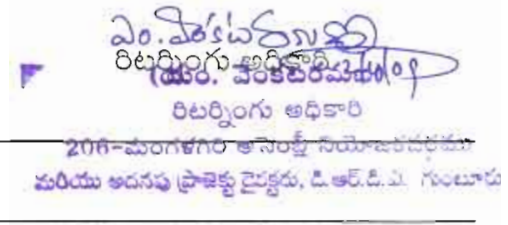 ఎం. వెంకటరమణ
రిటర్నింగు అధికారి
(యం. వెంకటరమణ)
రిటర్నింగు అధికారి
206-మంగళగిరి అసెంబ్లీ నియోజకవర్గము
మరియు అదనపు ప్రాజెక్టు డైరెక్టరు, డి.ఆర్.డి.ఎ. గుంటూరు